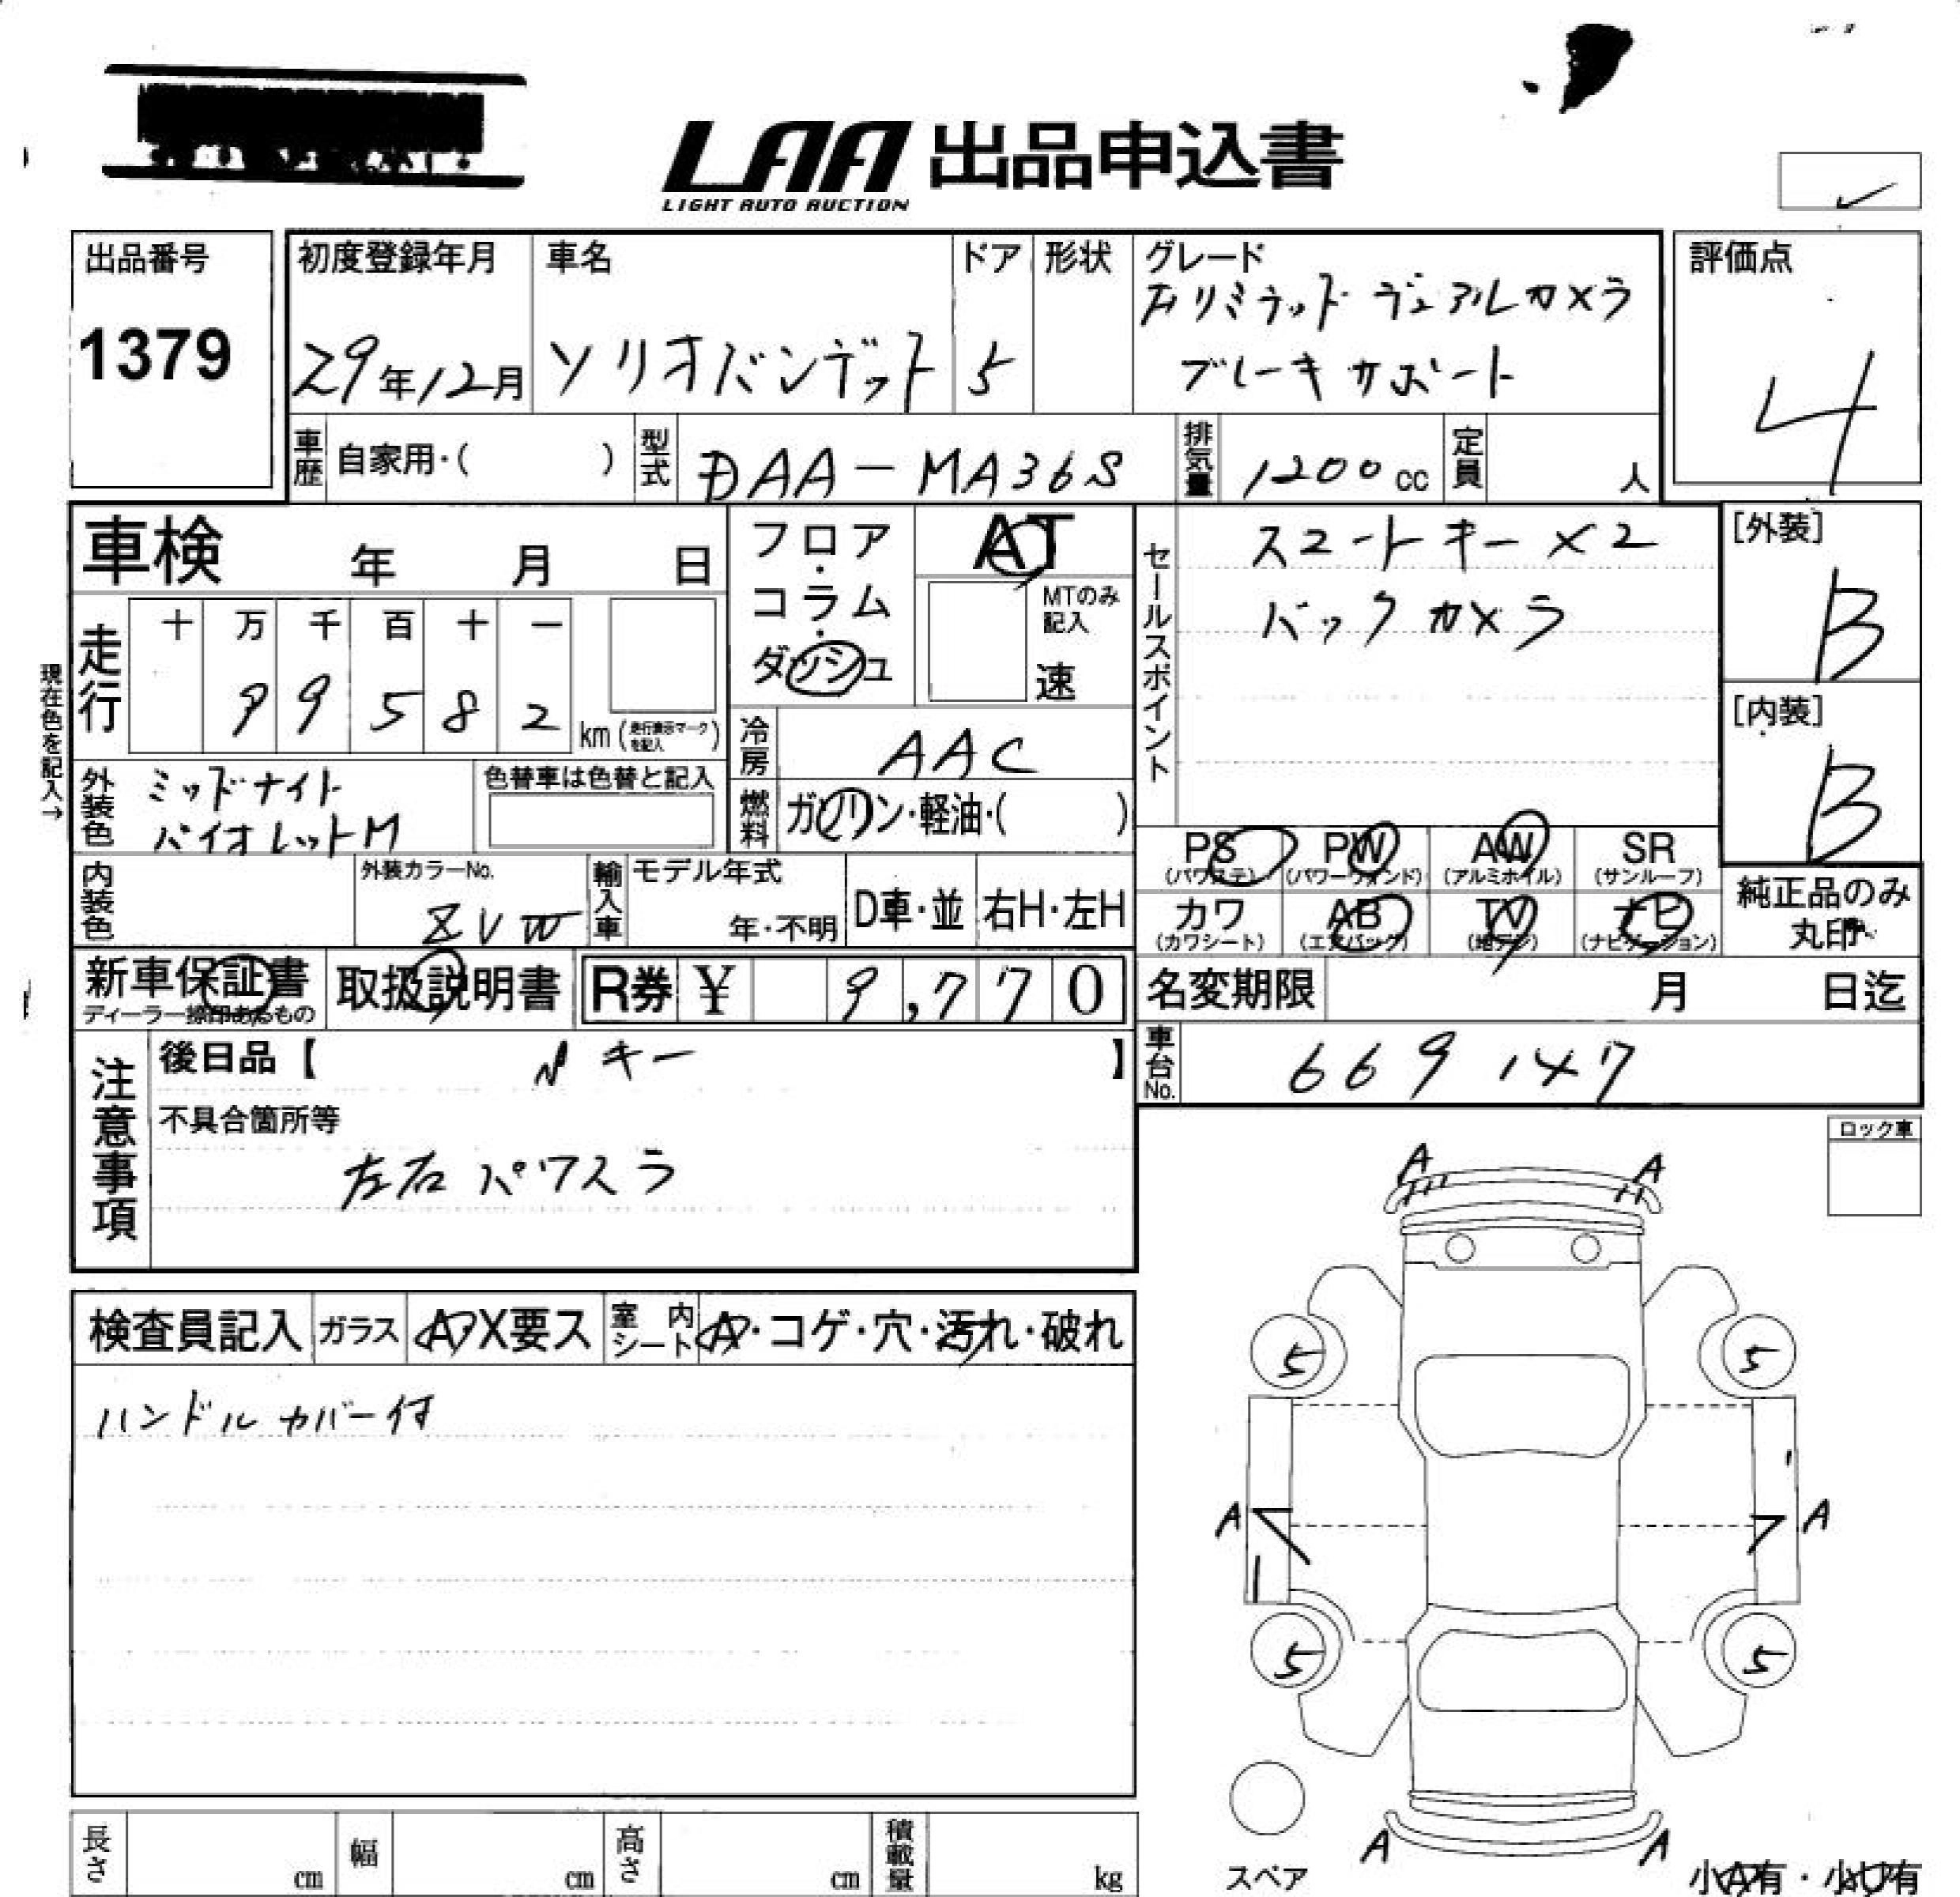 LAA 出品申込書
LIGHT AUTO AUCTION
出品番号
1379
初度登録年月
29年12月
車名
ソリオバンデット
ドア
5
形状
グレード
Fリミテッド デュアルカメラ
ブレーキサポート
評価点
4
車歴 自家用・( )
型式 DAA-MA36S
排気量 1200 cc
定員 人
車検 年 月 日
フロア・コラム・ダッシュ
AT
MTのみ記入
速
セールスポイント
スマートキー×2
バックカメラ
[外装]
B
[内装]
B
現在色を記入→
走行
十 万 千 百 十 一
9 9 5 8 2 km (走行表示マークを記入)
冷房 AAC
外装色 ミッドナイト
バイオレットM
色替車は色替と記入
燃料 ガソリン・軽油・( )
PS (パワステ)
PW (パワーウィンド)
AW (アルミホイル)
SR (サンルーフ)
カワ (カワシート)
AB (エアバッグ)
TV (地デジ)
ナビ (ナビゲーション)
純正品のみ丸印
内装色
外装カラーNo.
ZVW
輸入車
モデル年式
年・不明
D車・並
右H・左H
新車保証書
ディーラー捺印あるもの
取扱説明書
R券 ¥ 9,770
名変期限 月 日迄
車台No. 669147
注意事項
後日品【 キー 】
不具合箇所等
左右パワスラ
ロック車
検査員記入
ガラス A・X要ス
室内シート A・コゲ・穴・汚れ・破れ
ハンドルカバー付
A A
5 5
A A
5 5
A A
スペア
小A有・小U有
長さ cm
幅 cm
高さ cm
積載量 kg